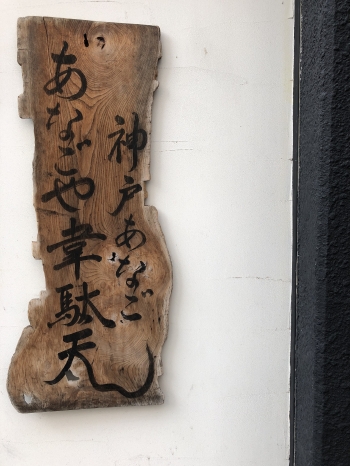 神戸あなご
あなごや韋駄天